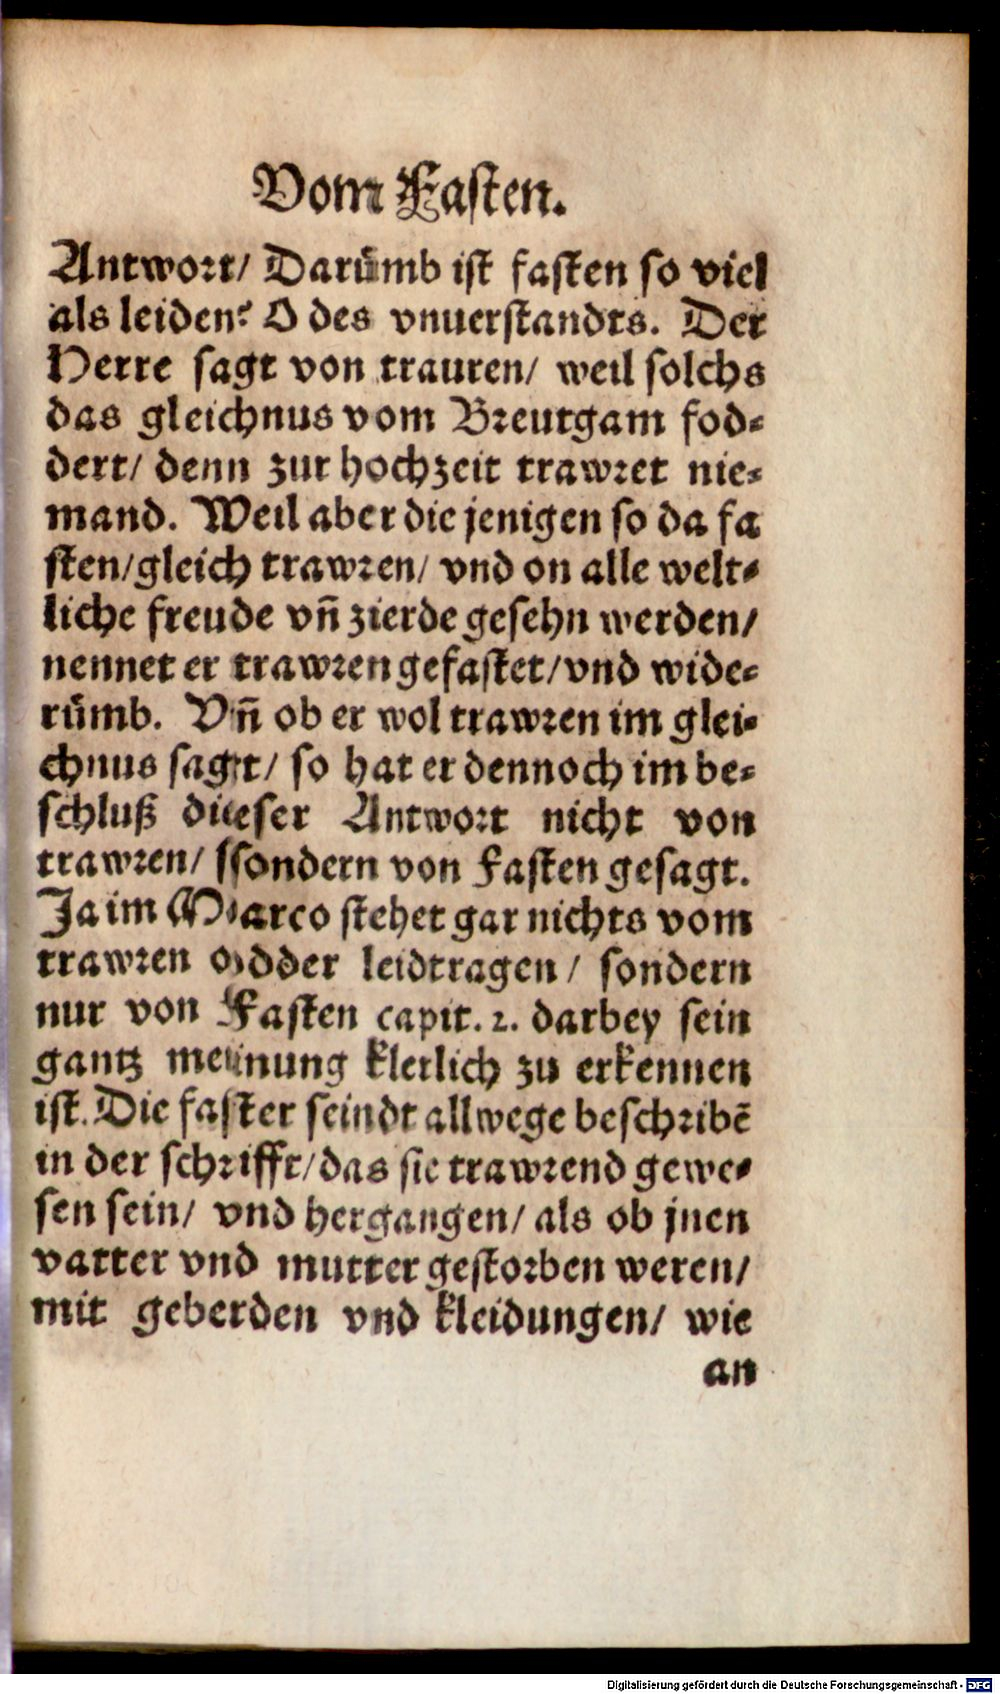 Vom Fasten.
Antwort/ Darümb ist fasten so viel
als leiden? O des vnuerstandts. Der
Herre sagt von trauren/ weil solchs
das gleichnus vom Breutgam fod⸗
dert/ denn zur hochzeit trawret nie⸗
mand. Weil aber die jenigen so da fa
sten/gleich trawren/ vnd on alle welt⸗
liche freude vñ zierde gesehn werden/
nennet er trawren gefastet/vnd wide⸗
rümb. Vñ ob er wol trawren im glei⸗
chnus sagt/ so hat er dennoch im be⸗
schluß dieser Antwort nicht von
trawren/ sondern von Fasten gesagt.
Ja im Marco stehet gar nichts vom
trawren odder leidtragen/ sondern
nur von Fasten capit. 2. darbey sein
gantz meinung klerlich zu erkennen
ist. Die faster seindt allwege beschribē
in der schrifft/das sie trawrend gewe⸗
sen sein/ vnd hergangen/ als ob jnen
vatter vnd mutter gestorben weren/
mit geberden vnd kleidungen/ wie
an
Digitalisierung gefördert durch die Deutsche Forschungsgemeinschaft - DFG